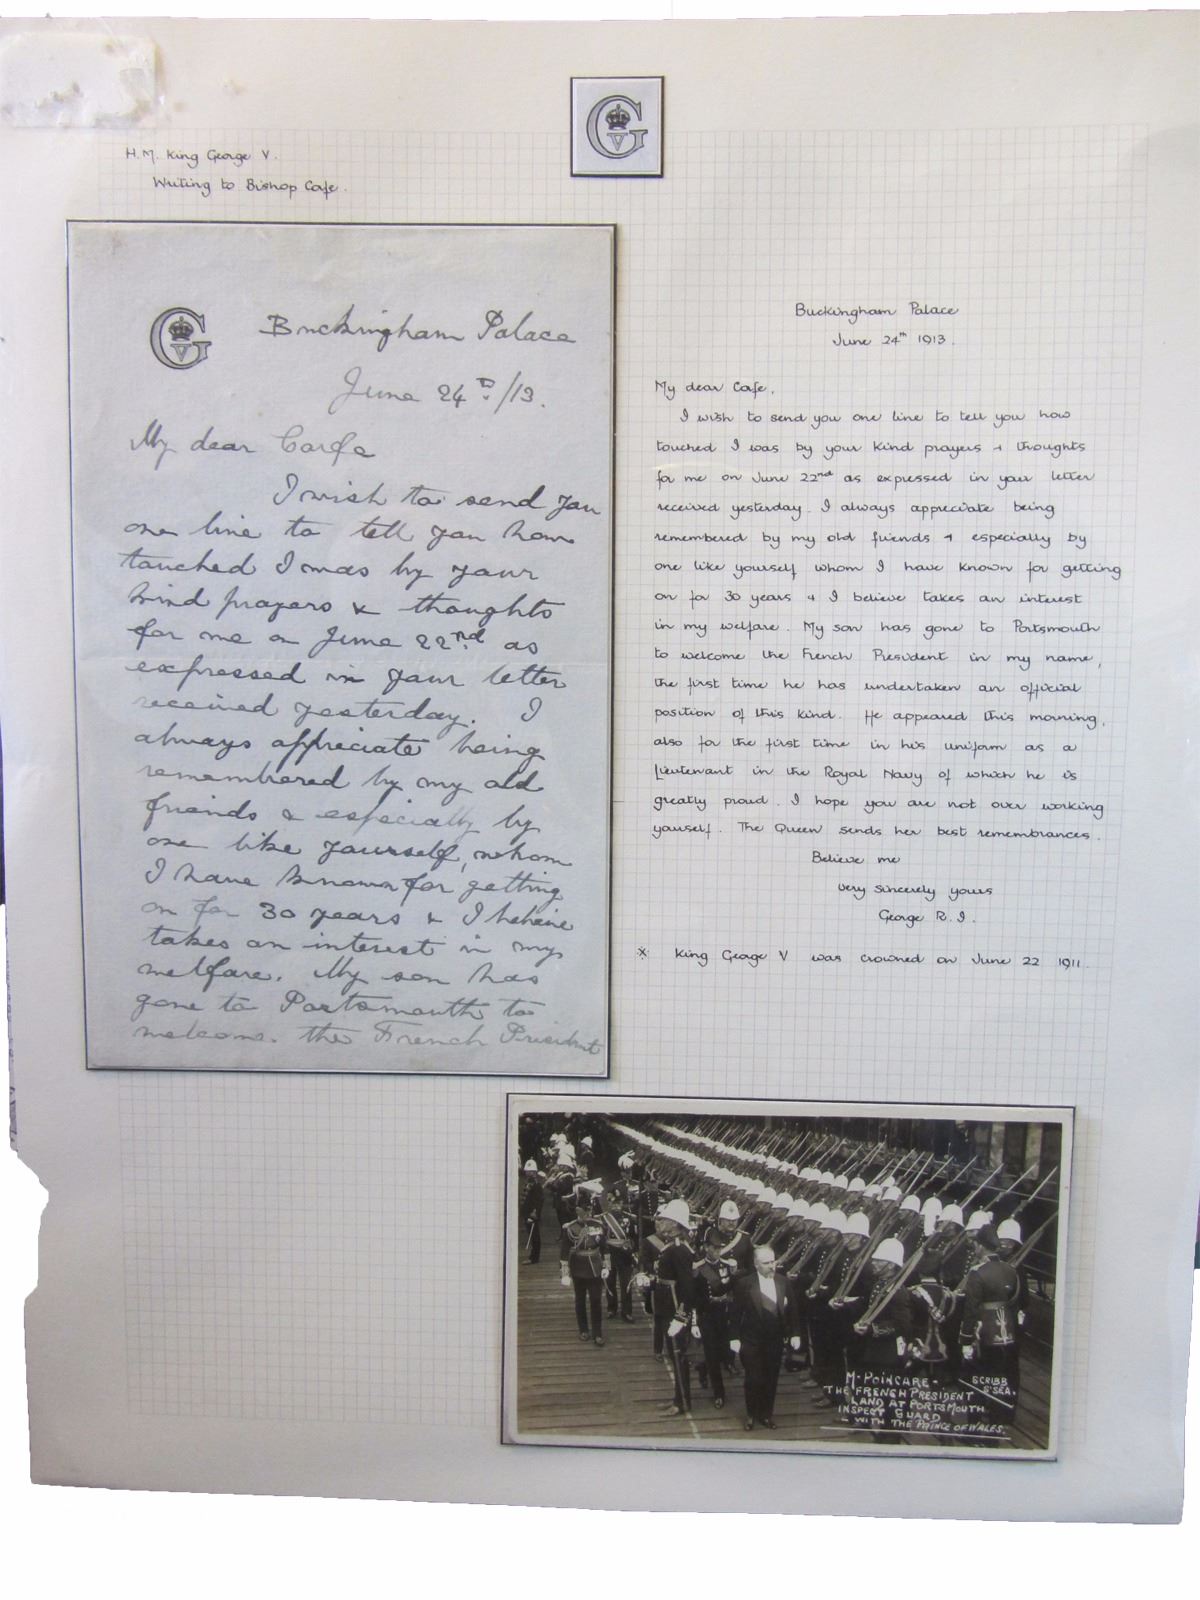 H.M. King George V.
Writing to Bishop Cafe.
G
V
G
V
Buckingham Palace
June 24th/13.
My dear Carfe
I wish to send you
one line to tell you how
touched I was by your
kind prayers & thoughts
for me on June 22nd as
expressed in your letter
received yesterday. I
always appreciate being
remembered by my old
friends & especially by
one like yourself, whom
I have known for getting
on for 30 years & I believe
takes an interest in my
welfare. My son has
gone to Portsmouth to
welcome the French President
Buckingham Palace
June 24th 1913.
My dear Cafe,
I wish to send you one line to tell you how
touched I was by your kind prayers + thoughts
for me on June 22nd as expressed in your letter
received yesterday. I always appreciate being
remembered by my old friends + especially by
one like yourself whom I have known for getting
on for 30 years + I believe takes an interest
in my welfare. My son has gone to Portsmouth
to welcome the French President in my name,
the first time he has undertaken an official
position of this kind. He appeared this morning,
also for the first time in his uniform as a
Lieutenant in the Royal Navy of which he is
greatly proud. I hope you are not over working
yourself. The Queen sends her best remembrances.
Believe me
very sincerely yours
George R.I.
* King George V was crowned on June 22 1911.
M. POINCARE -
THE FRENCH PRESIDENT
LAND AT PORTSMOUTH
INSPECT GUARD
- WITH THE PRINCE OF WALES.
SCRIBB
S'SEA.